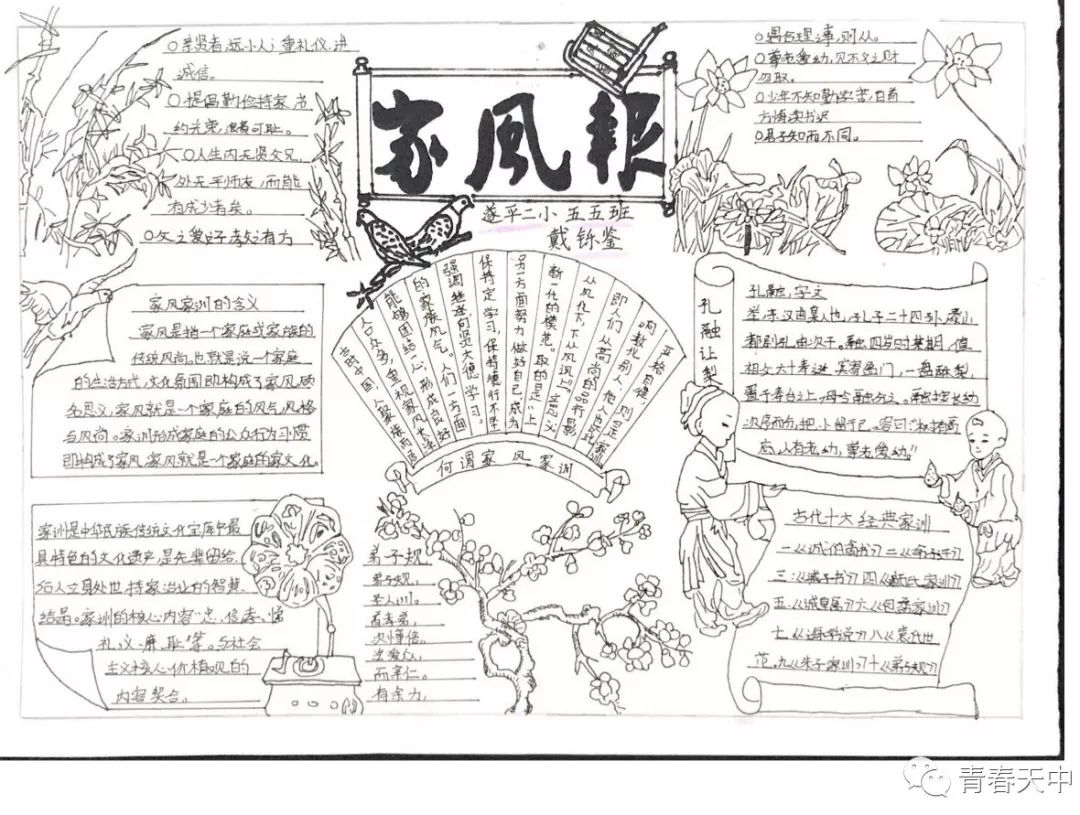 家風報
遂平二小 五五班
戴铄鉴
○亲贤者,远小人;重礼仪,讲
诚信。
○提倡勤俭持家,节
约光荣,浪费可耻。
○人生内无贤父兄,
外无严师友,而能
有成少者矣。
○父之爱子教之有方
○遇合理之事,则从。
○尊老爱幼,见不义之财
勿取。
○少年不知勤学苦,白首
方悔读书迟
○易手知而不同。
家风家训的含义
家风是指一个家庭或家族的
传统风尚。也就是说一个家庭
的生活方式,文化氛围即构成了家风,顾
名思义,家风就是一个家庭的风气,风格
与风尚。家训形成家庭的公众行为习惯
即构成了家风,家风就是一个家庭的家文化。
古时中国人家族而居
人口众多,重视家风生活
能够团结一心,形成良好
的家族风气。人们一方面
强调继承向贤大德学习。
保持定学习,保持德行不坠
另一方面努力做好自己,成为
新一代的模范。取的是"上
从风化下,下从风讽上"意义
即人们从高尚的品行影
响教化别人,他人也
严格自律,则是家训
何谓家风家训
孔融让梨
孔融,字文
举,东汉曲阜人也,孔子二十四孙,泰山
都尉孔宙次子。融四岁时某日,值
祖父六十寿诞,宾客盈门,一盘酥梨,
置于寿台之上,母令融分之。融按长幼
次序而分,
应,人有老幼,尊老爱幼。"
家训是中华民族传统文化宝库中最
具特色的文化遗产,是先辈留给
后人立身处世,持家治业的智慧
结晶。家训的核心内容"忠、信、孝、悌
礼、义、廉、耻"等。与社会
主义核心价值观的
内容契合。
弟子规
弟子规,
圣人训。
首孝弟,
次谨信。
泛爱众,
而亲仁。
有余力,
古代十大经典家训
一《诫伯禽书》二《命子迁》
三:《诫子书》四《颜氏家训》
五:《诫皇属》六《包拯家训》
七《诲学说》八《袁氏世
范》.九《朱子家训》十《弟子规》
青春天中